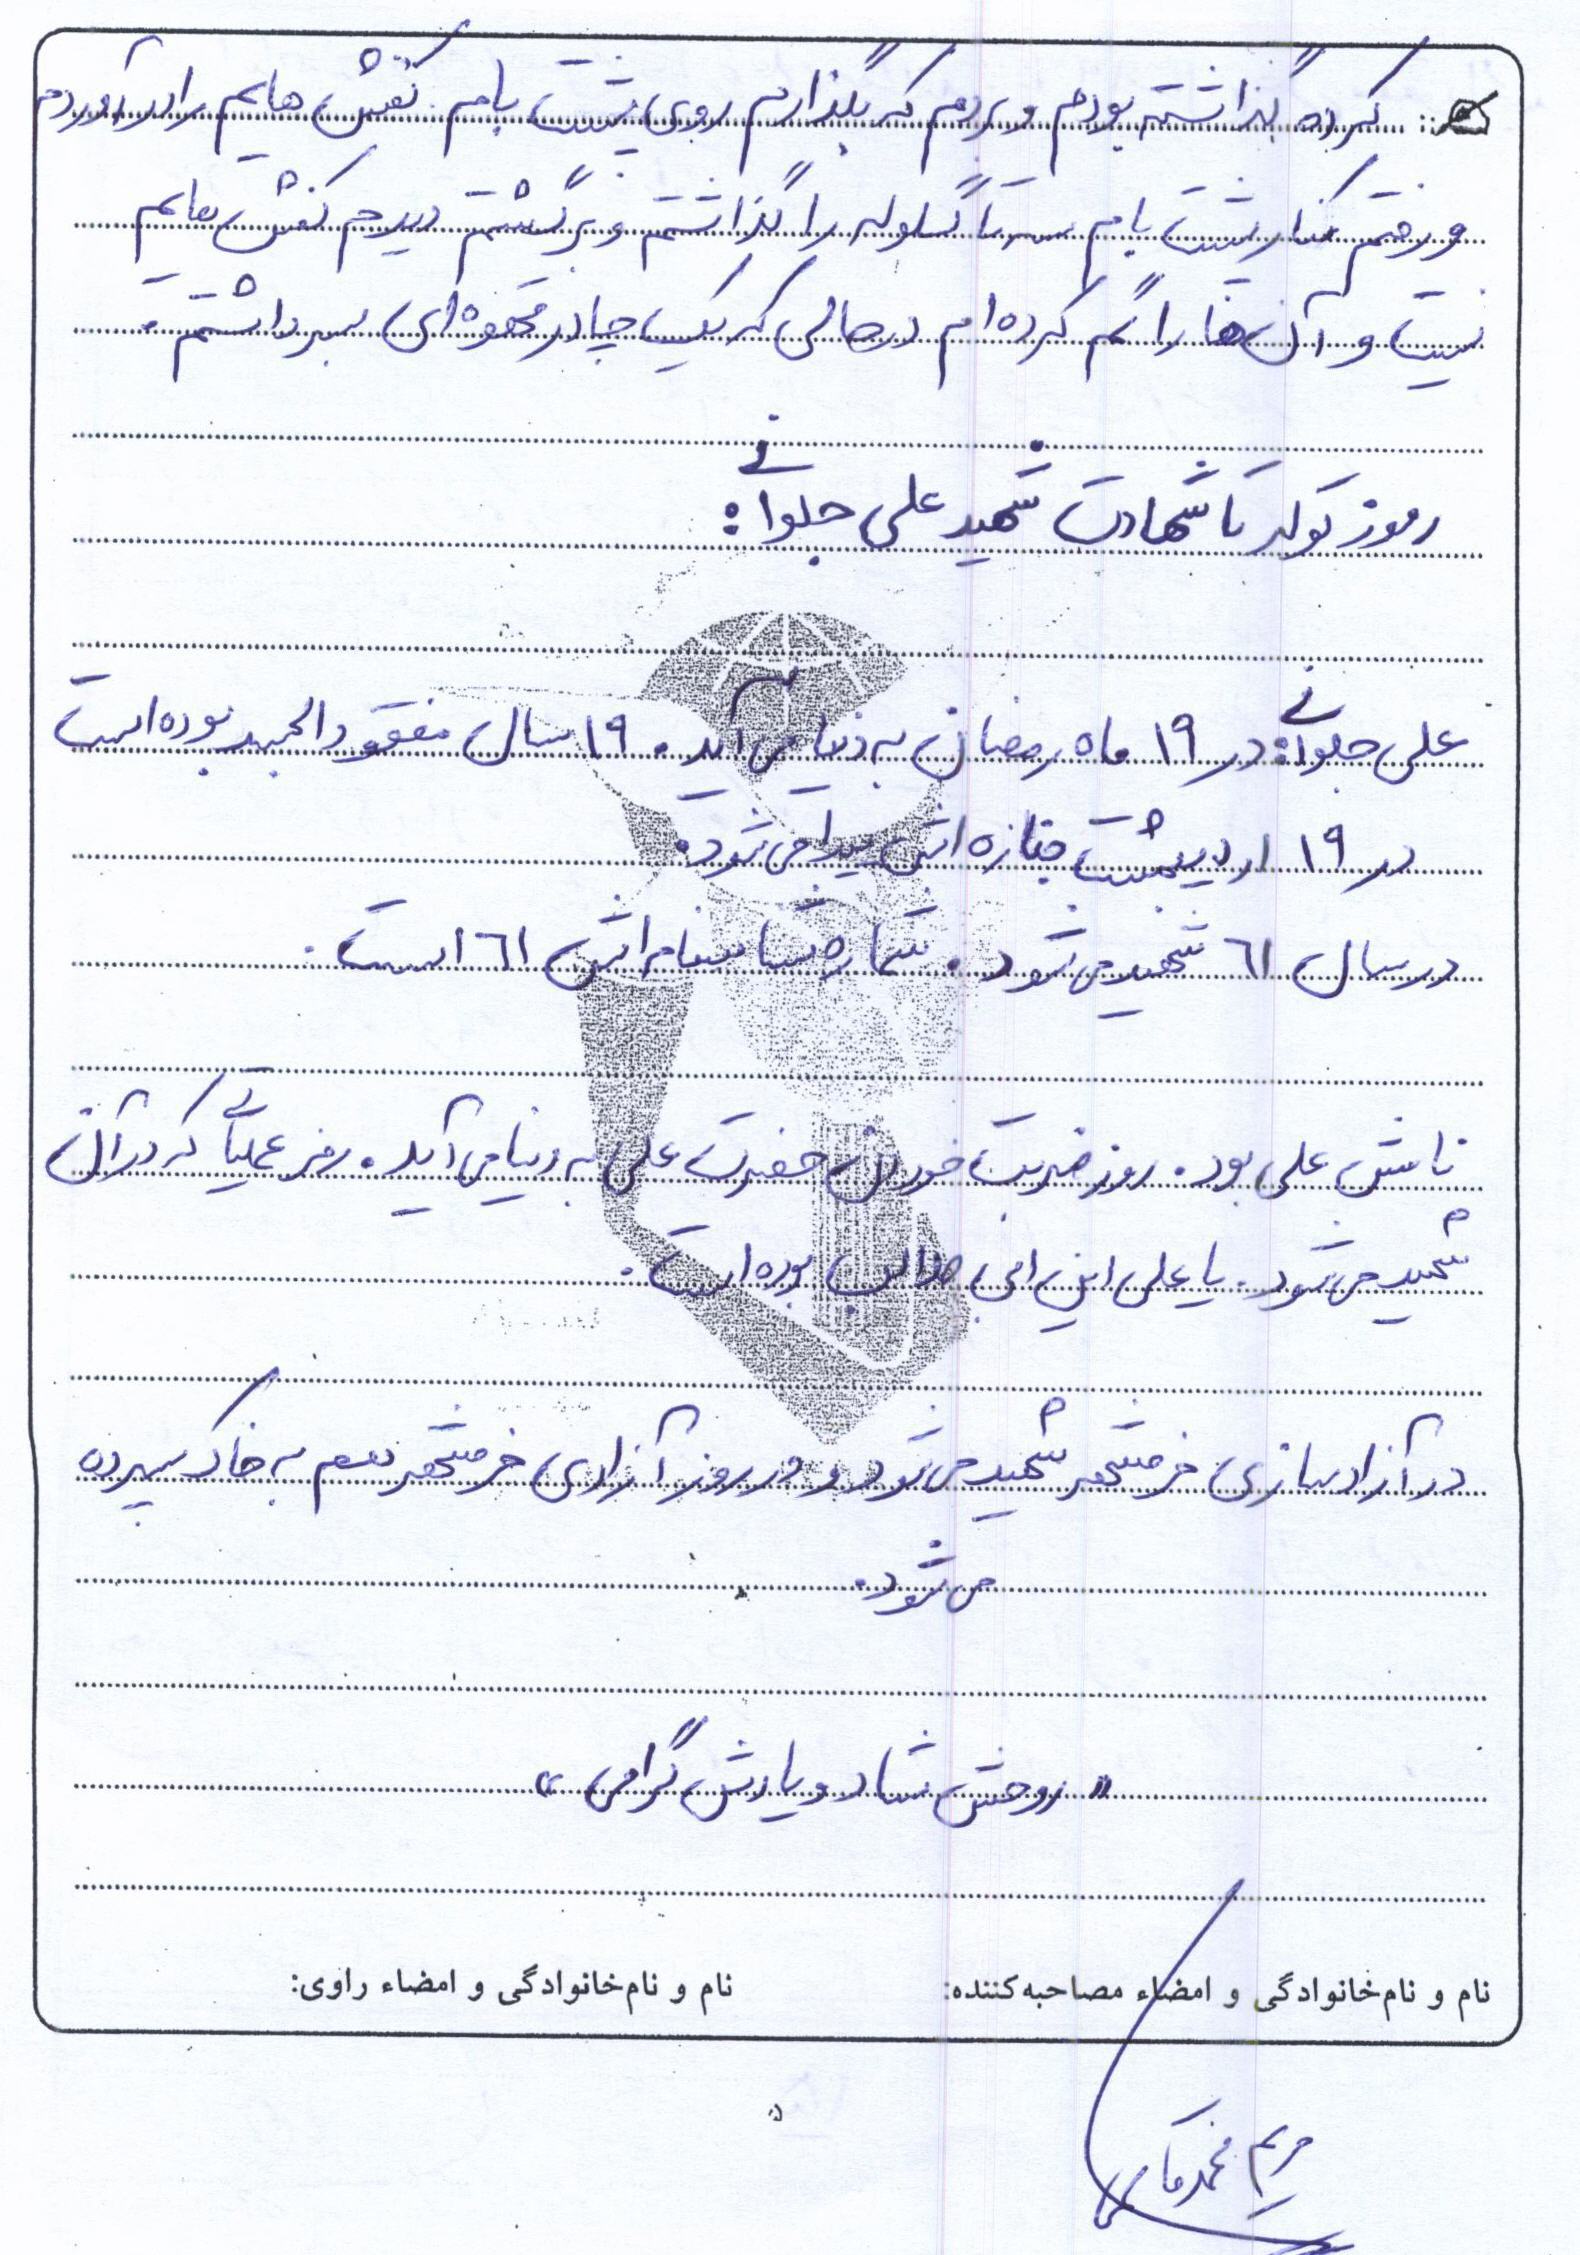 کرده گذاشته بودم و بردم که بگذارم روی پشت بام. کفش هایم را در آوردم
و رفتم کنار پشت بام سه تا گلوله را گذاشتم و برگشتم دیدم کفش هایم
نیست و آن ها را گم کرده ام در حالی که یک چادر قهوه ای سر داشتم.
رموز تولد تا شهادت شهید علی جلوانی:
علی جلوانی: در ۱۹ ماه رمضان به دنیا می آید. ۱۹ سال مفقود الجسد بوده است
در ۱۹ اردیبهشت جنازه اش پیدا می شود.
در سال ٦١ شهید می شود. شماره شناسنامه اش ٦١ است.
نامش علی بود. روز ضربت خوردن حضرت علی به دنیا می آید. رمز عملیاتی که در آن
شهید می شود. یا علی ابن ابی طالب بوده است.
در آزادسازی خرمشهر شهید می شود و در روز آزادی خرمشهر هم به خاک سپرده
می شود.
« روحش شاد و یادش گرامی »
نام و نام‌خانوادگی و امضاء مصاحبه‌کننده: نام و نام‌خانوادگی و امضاء راوی:
۵
مریم